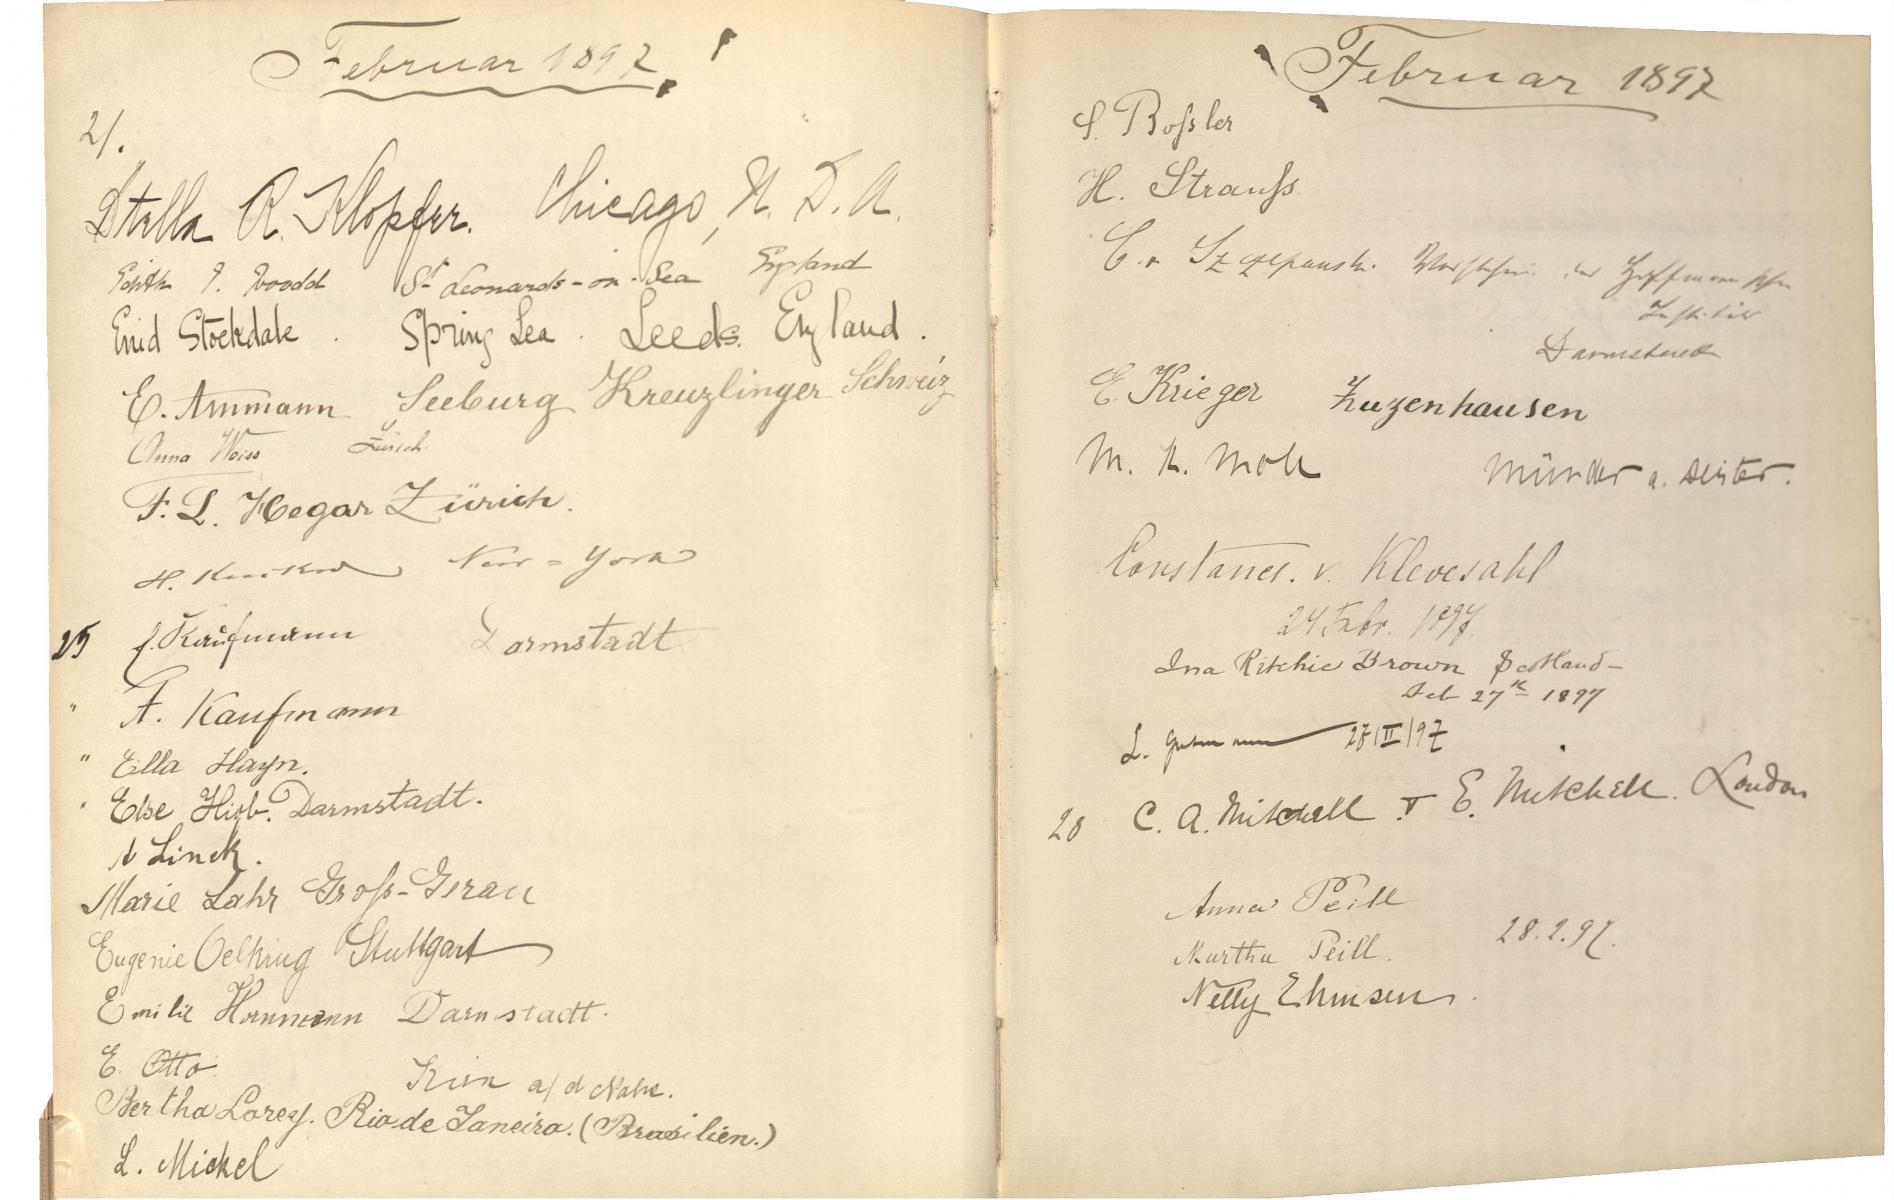 Februar 1897
21.
Stella R. Klopfer. Chicago, U. S. A.
Edith P. Woodd St Leonards-on-Sea England
Enid Stockdale. Spring Lea. Leeds. England.
E. Ammann Seeburg Kreuzlingen Schweiz
Anna Weiss Zürich
F. L. Hegar Zürich.
H. New-York
25 J. Kaufmann Darmstadt
" A. Kaufmann
" Ella Hayn.
" Else Darmstadt.
A Linck.
Marie Lahr Groß-Gerau
Eugenie Oelkrug Stuttgart
Emilie Darmstadt.
E. Otto Kirn a/d Nahe.
Bertha Lorey. Rio de Janeiro. (Brasilien.)
L. Mickel
Februar 1897
S. Boßler
H. Strauß
C. v. Szczepanski. Vorsteherin der Hoffmann'schen
Institut
Darmstadt
E. Krieger Zuzenhausen
M. K. Moll Münder a. Deister.
Constance. v. Klevesahl
24 Febr. 1897.
Ina Ritchie Brown Scotland-
Feb 27th 1897
L. Gutmann 27/II/97
28 C. A. Mitchell & E. Mitchell. London
Anna Peill
Martha Peill. 28.2.97.
Netty Ehmsen.